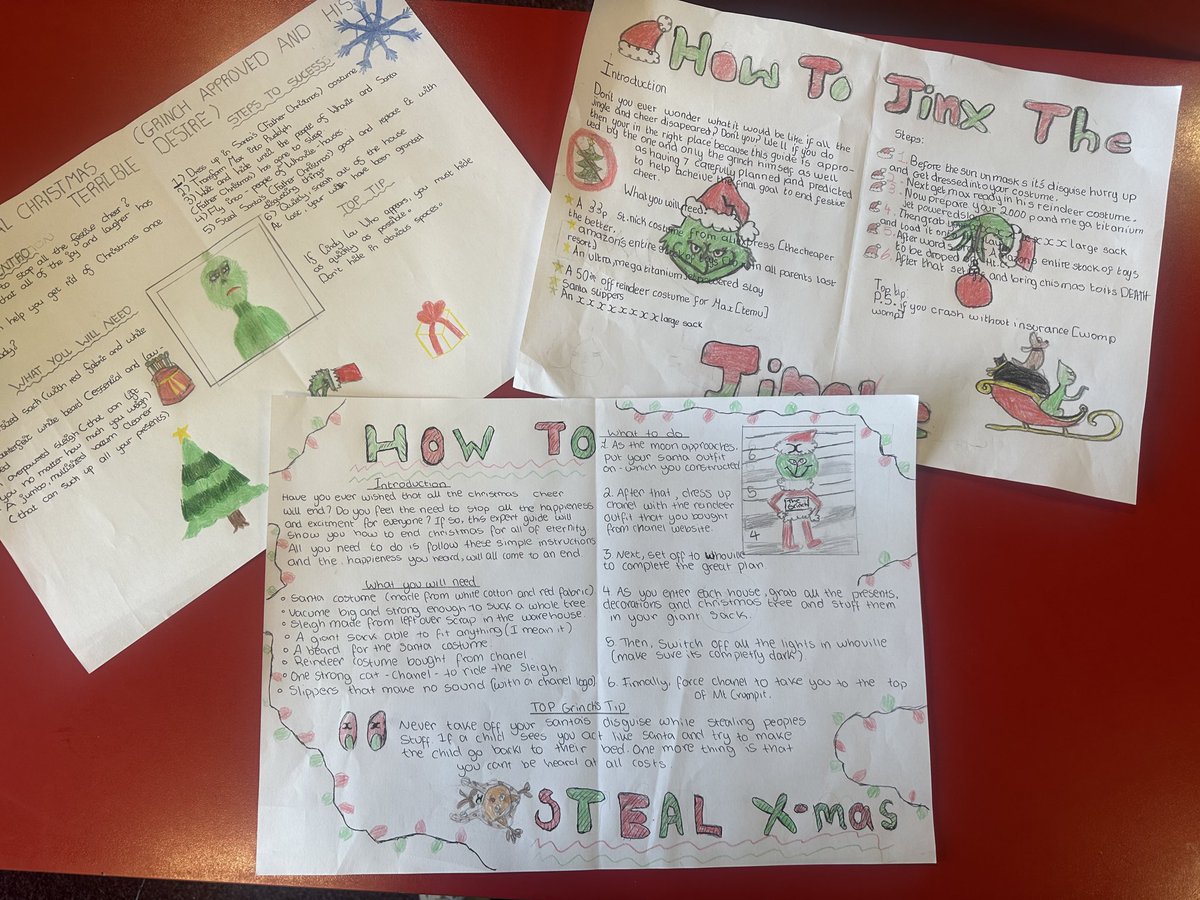 AL CHRISTMAS (GRINCH APPROVED AND HIS
TERRIBLE DESIRE)
STEPS TO SUCCESS
1) Dress up in Santa's (Father Christmas) costume
2) Transform Max into Rudolph
3) Wait and hide until the people of Whoville and Santa
(Father Christmas) has gone to sleep
4) Fly into people of Whoville houses
5) Steal Santa's (Father Christmas) good and replace it with
6) Quietly, sneak out of the house
At last, your wish have been granted
TOP TIP
If Cindy Lou Who appears, you must hide
as quickly as possible.
Don't hide in obvious spaces.
to stop all the festive cheer?
that all of the joy and laugher has
help you get rid of Christmas once
WHAT YOU WILL NEED
sized sack (with red fabric and white
white beard (essential and
overpowered sleigh (that can lift
you no matter how much you weigh)
A jumbo, multisized vacum cleaner
(that can such up all your presents)
How To Jinx The
Introduction
Don't you ever wonder what it would be like if all the
jingle and cheer disapeared? Don't you? We'll if you do
then your in the right place because this guide is appro-
ved by the one and only the grinch himself as well
as having 7 carefully planned and predicted
to help acheive the final goal to end festive
What you will need:
A 33p st.nick costume from aliexpress [the cheaper
the better.
amazon's entire in all parents last
resort]
An ultra, mega titanium powered slay
A 50% off reindeer costume for Max [temu]
Santa slippers
An x x x x x x x x large sack
Steps:
1. Before the sun unmasks it's disguise hurry up
and get dressed into your costume.
2. Next get max ready in his reindeer costume.
3. Now prepare your 2,000 pound mega titanium
jet powered
4. Then grab x x x large sack
and load it on Amazon's entire stock of toys
5. After word
to be droped
6. After that set and bring chismas to its DEATH
Top tip:
P.S. if you crash without insurance [womp
womp]
Jinx
HOW TO
Introduction
Have you ever wished that all the christmas cheer
will end? Do you feel the need to stop all the happieness
and excitment for everyone? If so, this expert guide will
show you how to end christmas for all of eternity.
All you need to do is follow these simple instructions
and the happieness you heard, will all come to an end
What you will need
Santa costume (made from white cotton and red fabric)
Vacume big and strong enough to suck a whole tree
Sleigh made from left over scrap in the warehouse.
A giant sack able to fit anything (I mean it)
A beard for the Santa costume.
Reindeer costume bought from chanel
One strong cat - Chanel - to ride the sleigh.
Slippers that make no sound (with a chanel logo)
What to do
1. As the moon approaches,
put your santa outfit
on - which you constructed
2. After that, dress up
chanel with the reindeer
outfit that you bought
from chanel website.
3. Next, set off to Whoville
to complete the great plan.
4. As you enter each house, grab all the presents,
decorations and christmas tree and stuff them
in your giant sack.
5. Then, switch off all the lights in whoville
(make sure its completly dark)
6. Finnally, force chanel to take you to the top
of Mt Crumpit.
6
5
4
TOP Grinch's Tip
Never take off your santa's disguise while stealing peoples
stuff. If a child sees you act like santa and try to make
the child go back to their bed. One more thing is that
you cant be heard at all costs.
STEAL X-mas